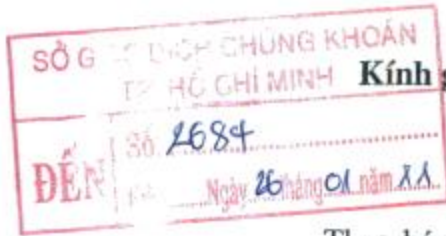 SỞ GIAO DỊCH CHỨNG KHOÁN
TP HỒ CHÍ MINH
Kính g
ĐẾN
Số 2684
Ngày 26 tháng 01 năm